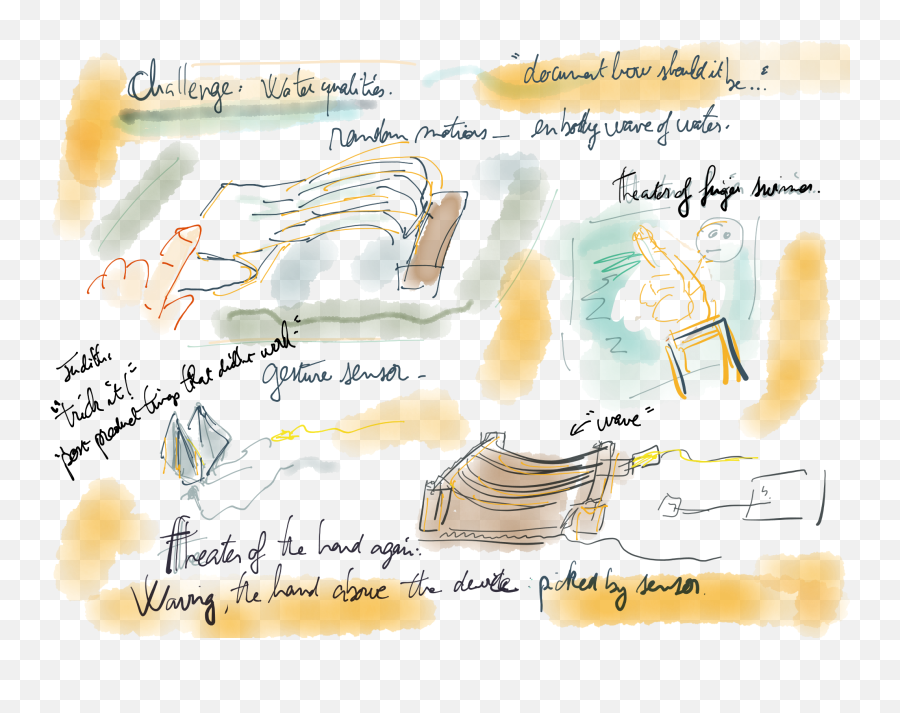 Challenge: Water qualities.
"document how should it
be..."
random motions - embody wave of water.
Theater of finger swimmer.
Judith:
"trick it!"
"post product things that didn't work"
gesture sensor -
"wave"
Theater of the hand again.
Waving, the hand above the device: picked by sensor.